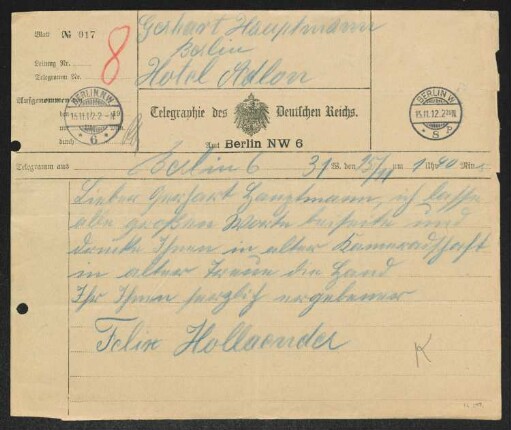 Blatt № 917
Leitung Nr.
Telegramm Nr.
8
Gerhart Hauptmann
Berlin
Hotel Adlon
Aufgenommen
BERLIN NW
15.11.12.2-N
* 6
durch
Telegraphie des Deutschen Reichs.
Amt Berlin NW 6
BERLIN W
15.11.12.2
* 8
Telegramm aus Berlin 6 31 W. den 15/11 um 1 Uhr 40 Min.
Lieber Gerhart Hauptmann, ich lasse
alle großen Worte beiseite und
drücke Ihnen in alter Kameradschaft
in alter Treue die Hand
Ihr Ihnen herzlich ergebener
Felix Hollaender
K